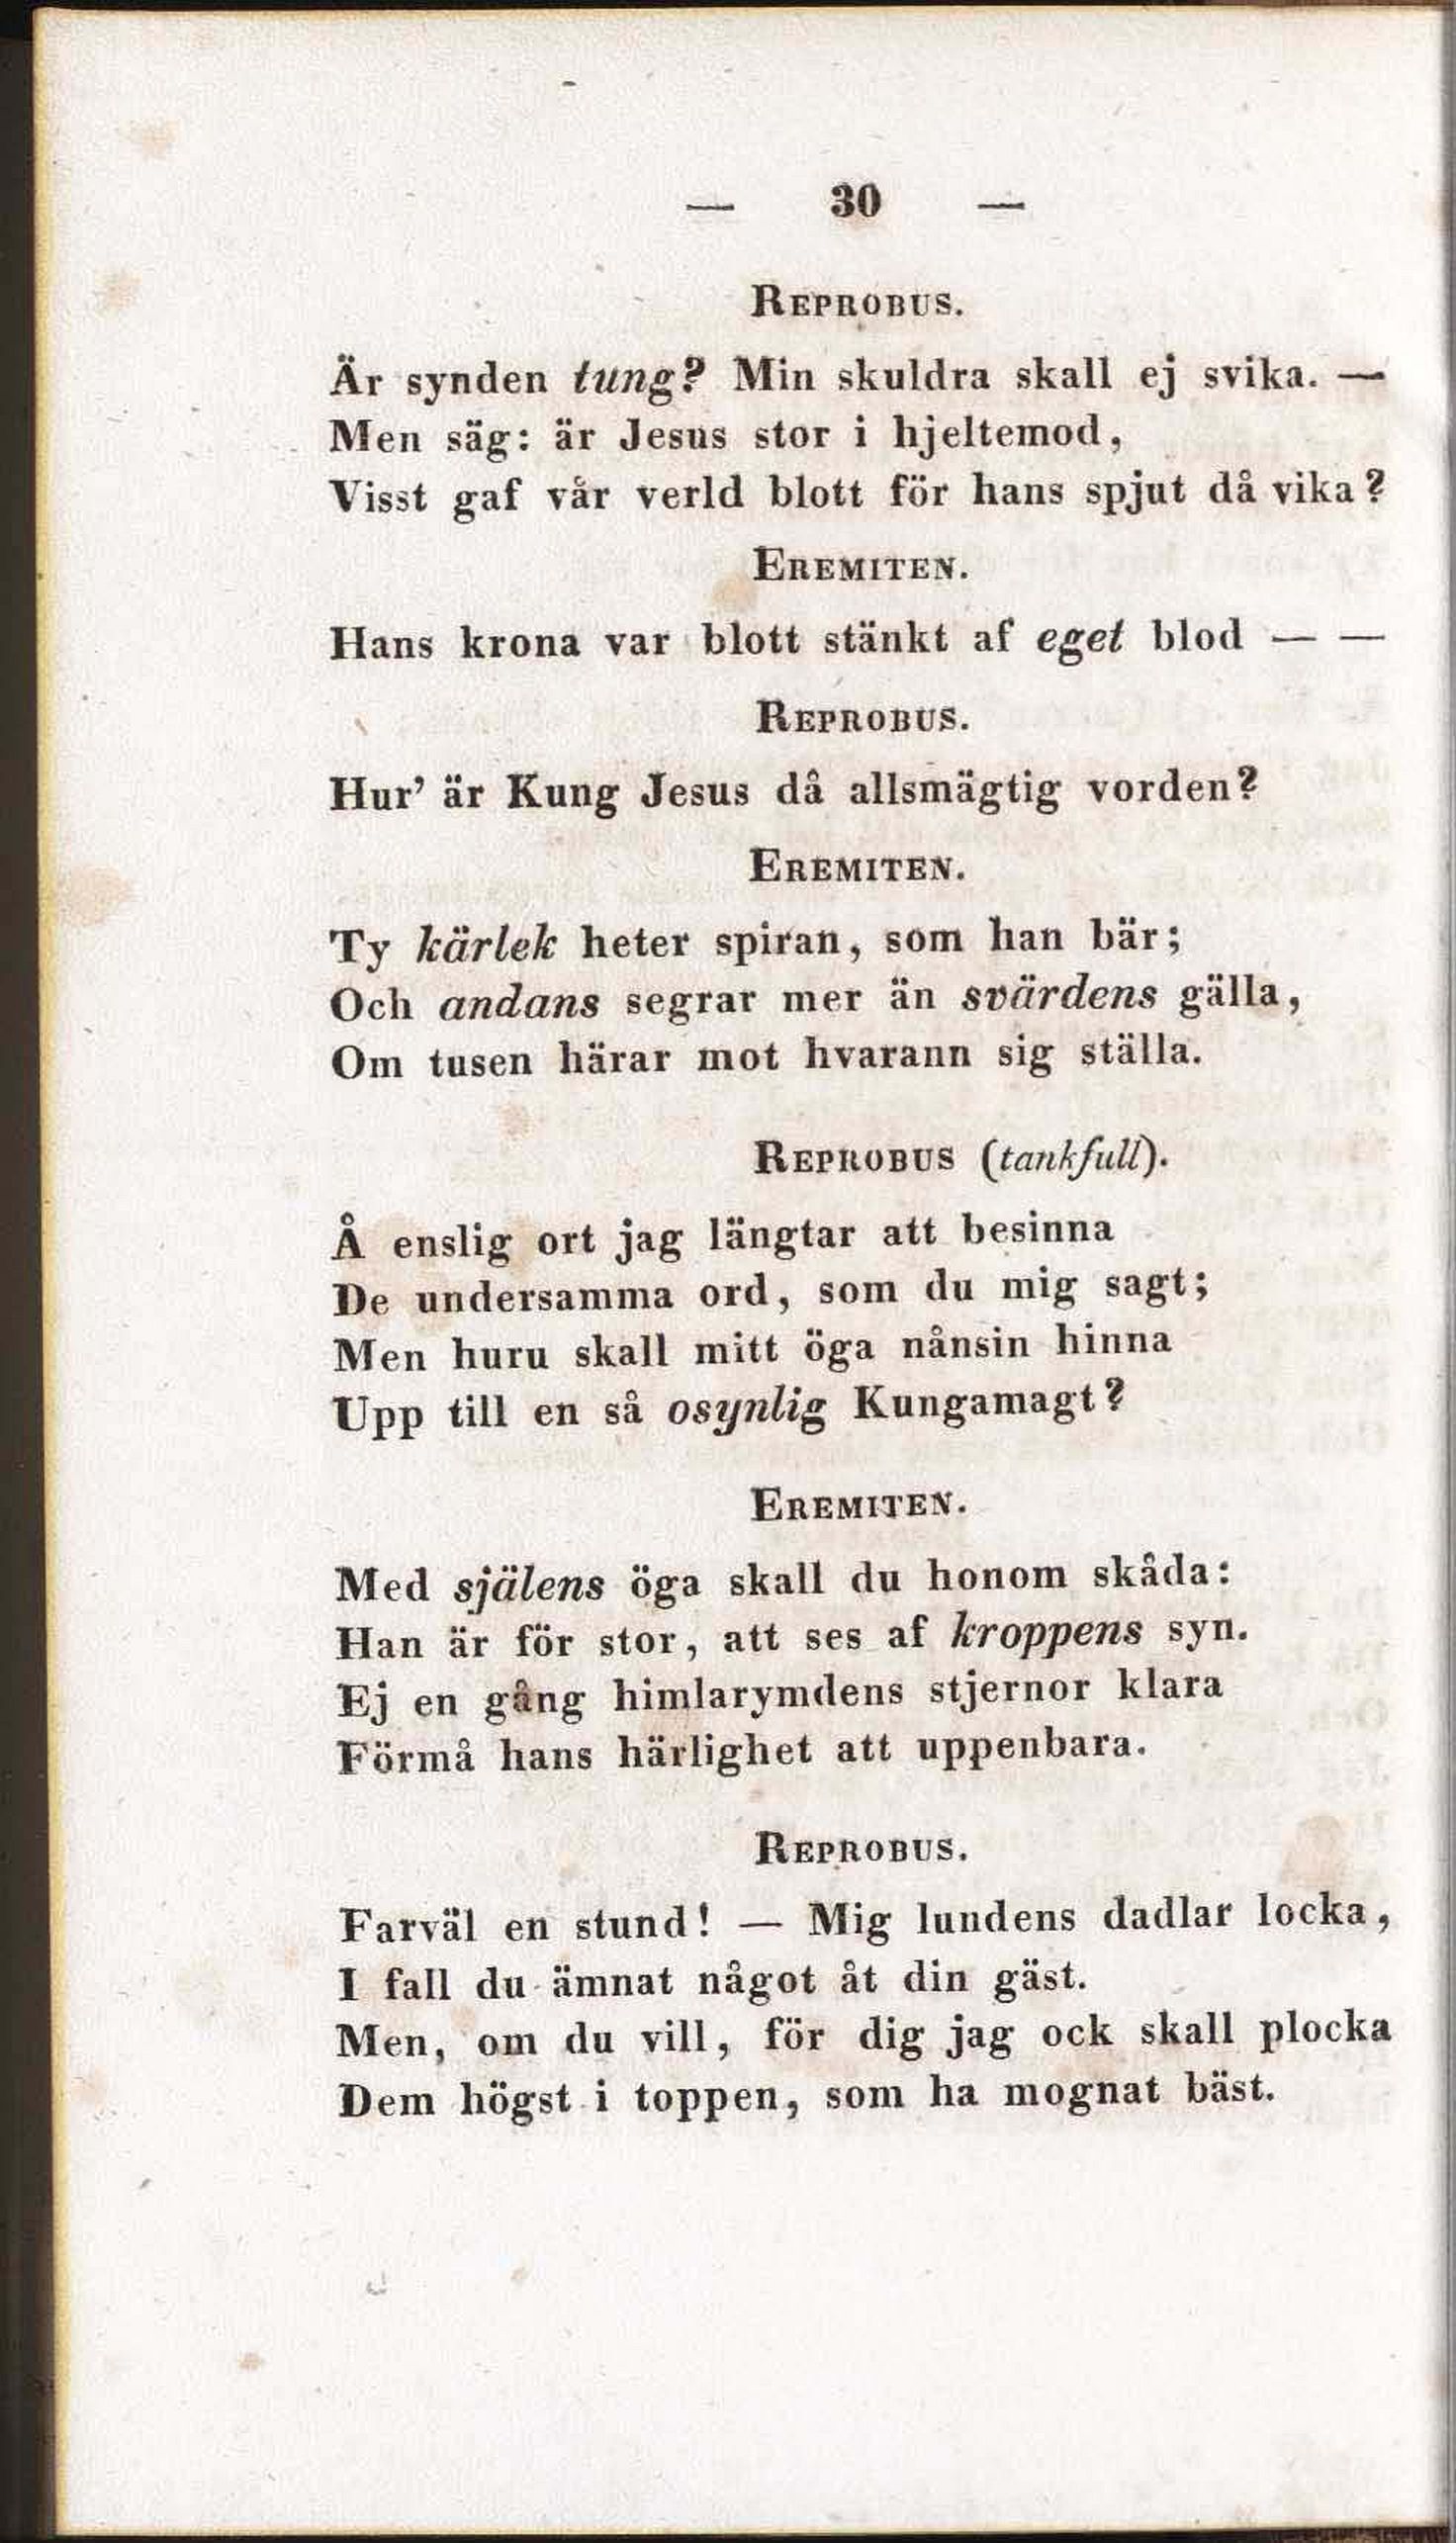 — 30 —
REPROBUS.
Är synden tung? Min skuldra skall ej svika. —
Men säg: är Jesus stor i hjeltemod,
Visst gaf vår verld blott för hans spjut då vika?
EREMITEN.
Hans krona var blott stänkt af eget blod — —
REPROBUS.
Hur' är Kung Jesus då allsmägtig vorden?
EREMITEN.
Ty kärlek heter spiran, som han bär;
Och andans segrar mer än svärdens gälla,
Om tusen härar mot hvarann sig ställa.
REPROBUS (tankfull).
Å enslig ort jag längtar att besinna
De undersamma ord, som du mig sagt;
Men huru skall mitt öga nånsin hinna
Upp till en så osynlig Kungamagt?
EREMITEN.
Med själens öga skall du honom skåda:
Han är för stor, att ses af kroppens syn.
Ej en gång himlarymdens stjernor klara
Förmå hans härlighet att uppenbara.
REPROBUS.
Farväl en stund! — Mig lundens dadlar locka,
I fall du ämnat något åt din gäst.
Men, om du vill, för dig jag ock skall plocka
Dem högst i toppen, som ha mognat bäst.